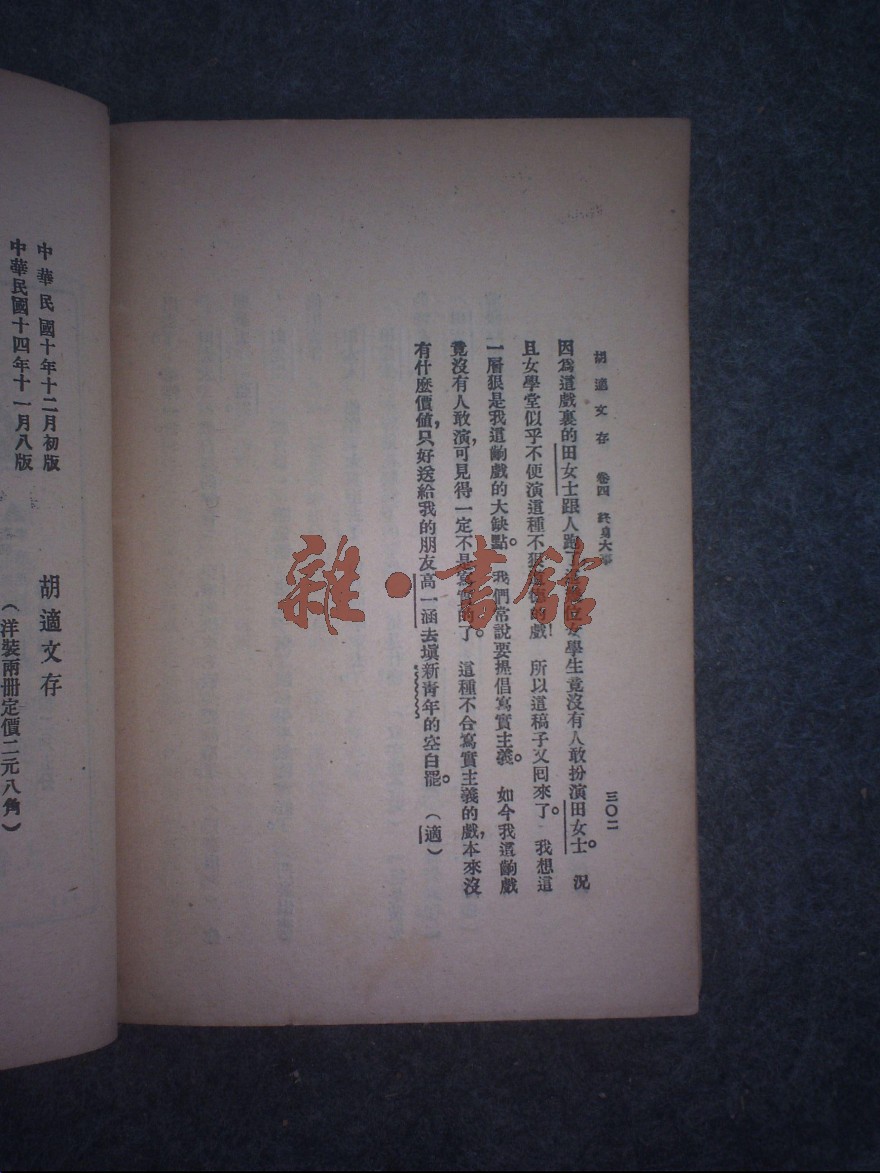 胡適文存 卷四 終身大事 三〇二
因爲這戲裏的田女士跟人跑了,這幾位女學生竟沒有人敢扮演田女士。 況
且女學堂似乎不便演這種不狠道德的戲! 所以這稿子又回來了。 我想這
一層狠是我這齣戲的大缺點。 我們常說要提倡寫實主義。 如今我這齣戲
竟沒有人敢演,可見得一定不是寫實的了。 這種不合寫實主義的戲,本來沒
有什麼價値,只好送給我的朋友高一涵去填新青年的空白罷。 (適)
中華民國十年十二月初版
中華民國十四年十一月八版
胡適文存
(洋裝兩册定價二元八角)
雜·書館